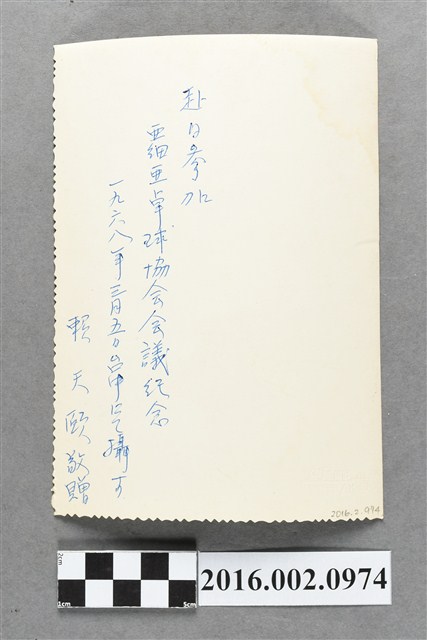 赴日參加
亞細亞卓球協会会議紀念
一九六八年三月五日台中にて攝す
賴天頤敬贈
2016.2.974
2cm
1cm
5cm
2016.002.0974